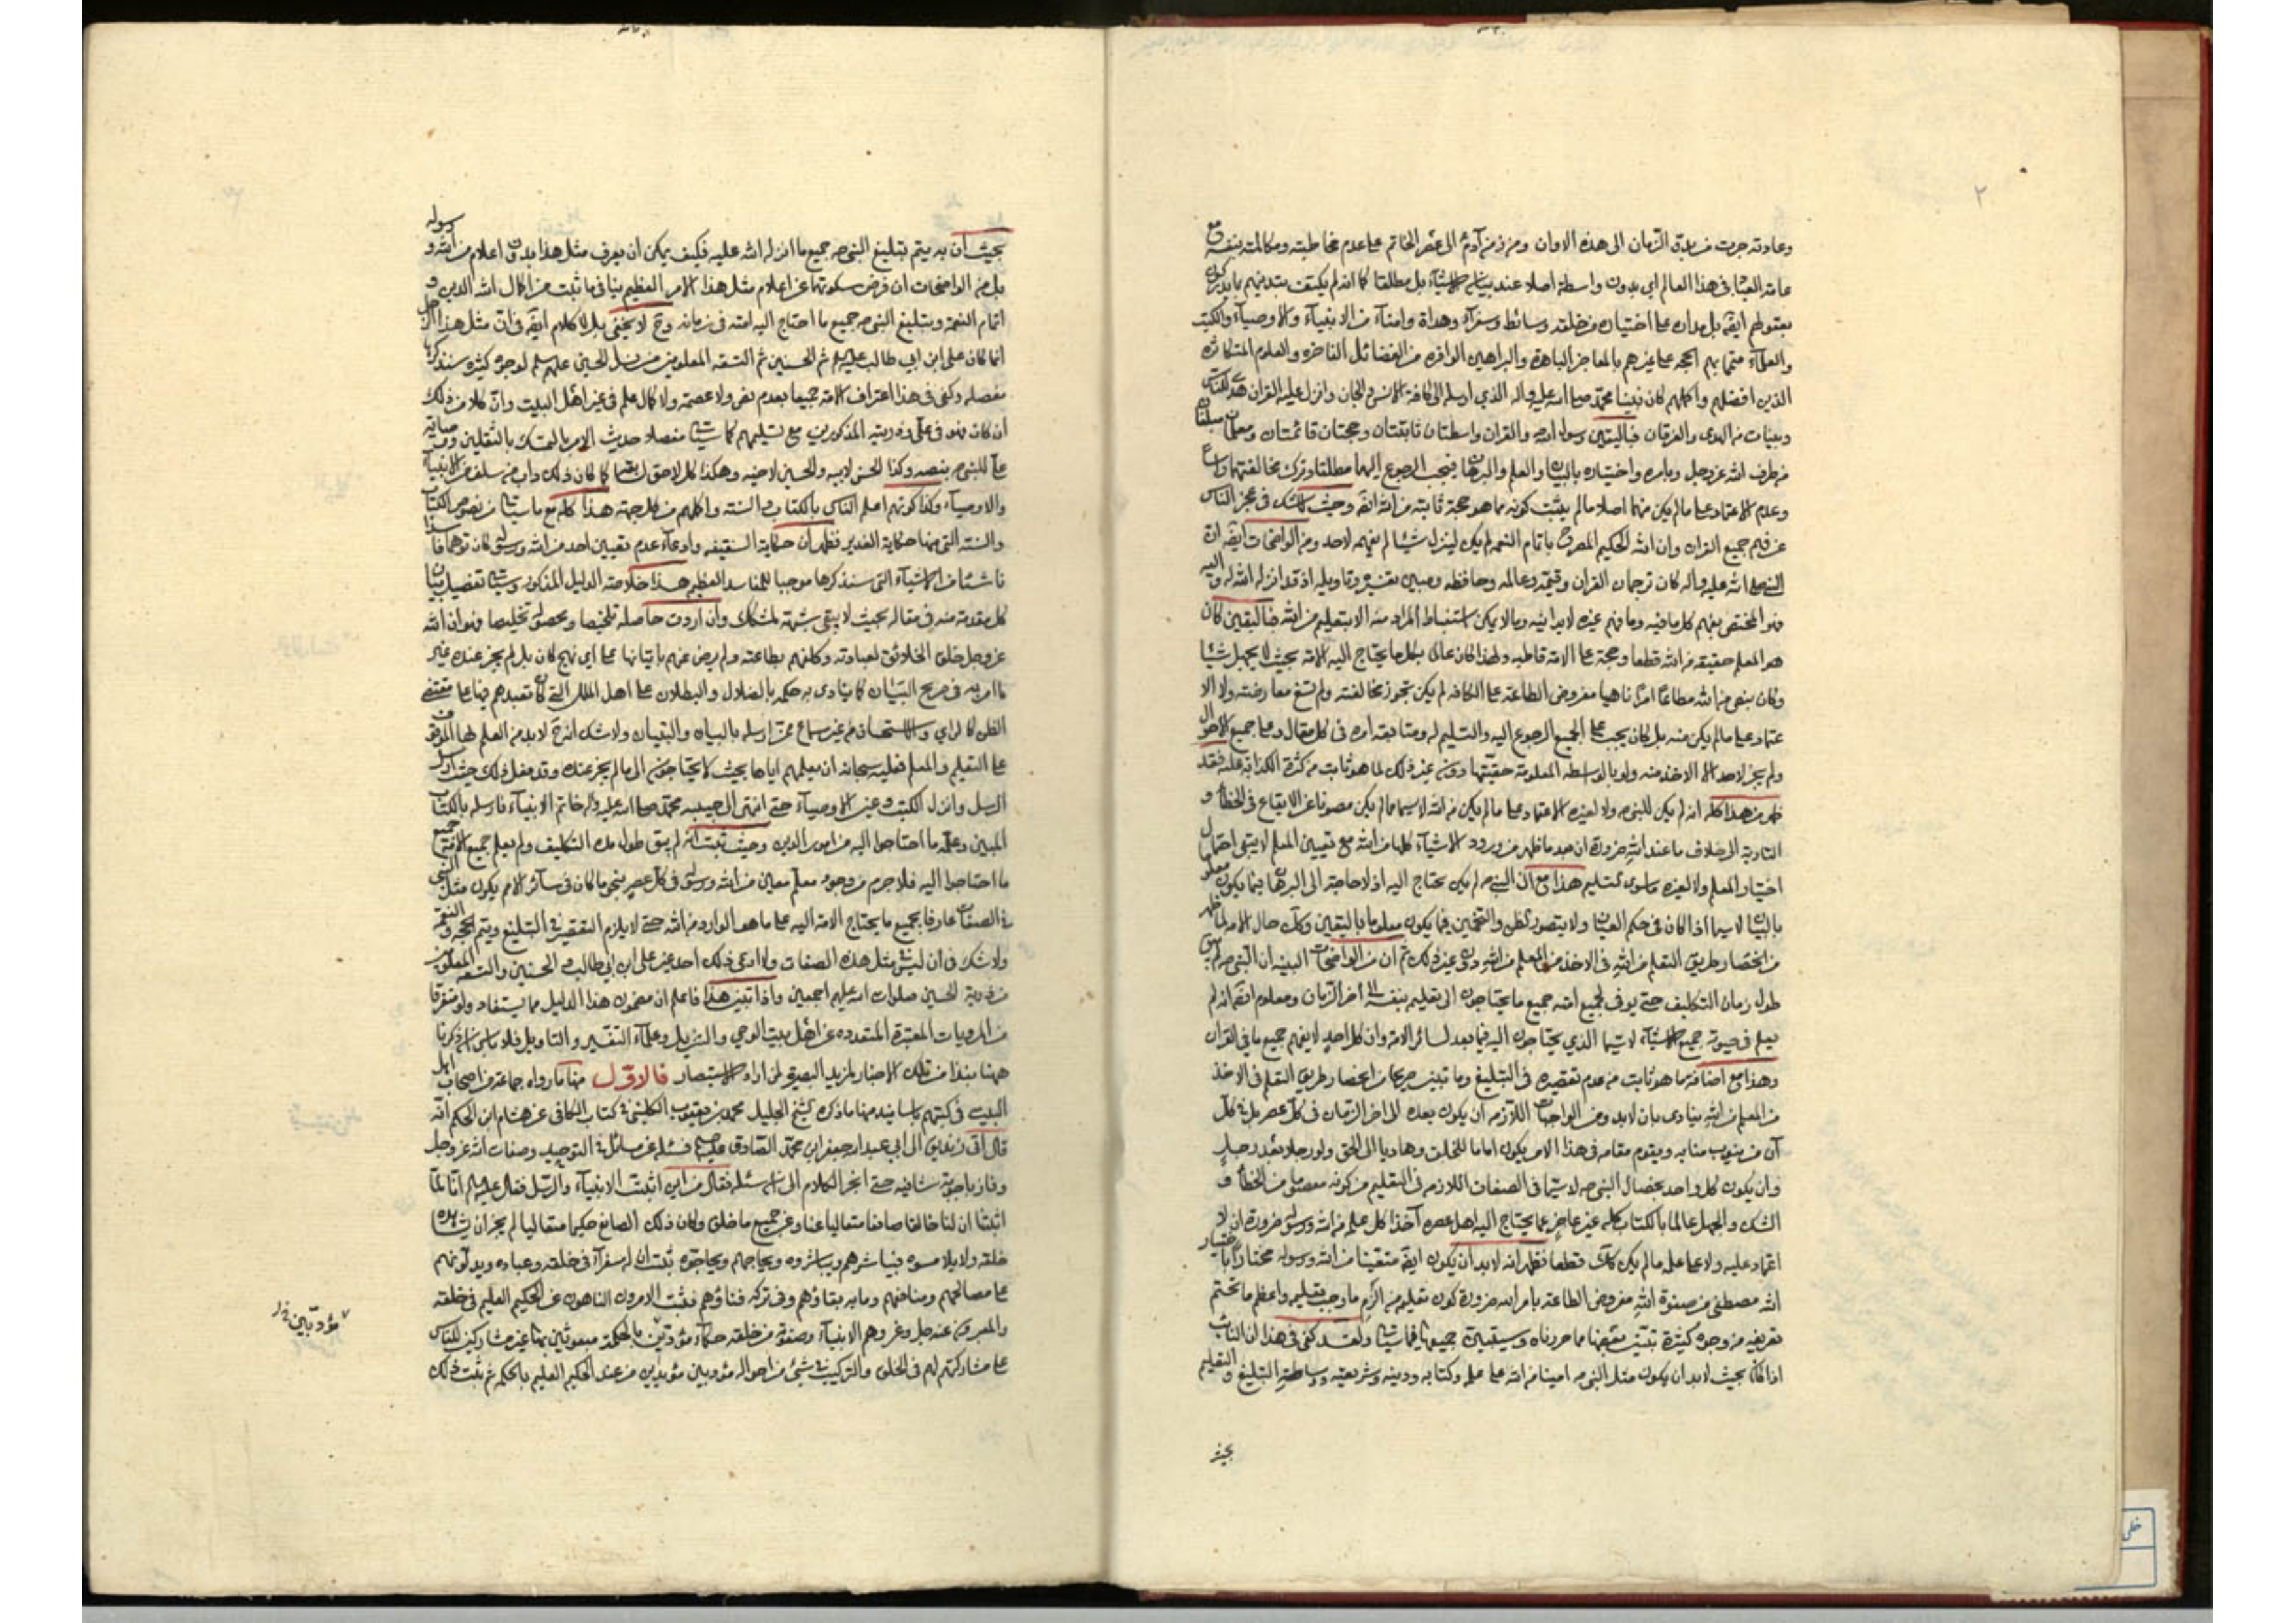 ٢
وعادته جرت من بدو الزمان الى هذه الاوان ومن زمن آدم الى عصر الخاتم على عدم مخاطبته ومكالمته بنفسه مع
عامة العباد فى هذا العالم اى بدون واسطة اصلا عند بيان الاشياء بل مطلقا كما انه لم يكتف بتدينهم بما يدركون
بعقولهم ايضا بل مدار على اختيار من خلقه وسائط وسفراء وهداة وامناء من الانبياء والاوصياء والكتب
والعلماء متما بهم الحجة على غيرهم بالمعاجز الباهرة والبراهين الوافره من الفضائل الفاخره والعلوم المتكاثره
الذين افضلهم واكملهم كان نبينا محمد صلى الله عليه واله الذي ارسله الى كافة الانس والجان وانزل عليه القران هدى للناس
وبينات من الهدى والفرقان فباليقين رسول الله والقران واسطتان ثابتتان وحجتان قائمتان ومعلمان مبلغان
من طرف الله عز وجل وبامره واختياره بالبيان والعلم والبرهان فيجب الرجوع اليهما مطلقا وترك مخالفتهما راسا
وعدم الاعتماد على ما لم يكن منهما اصلا ما لم يثبت كونه مما هو حجة ثابتة من الله ايضا وحيث لا شك فى عجز الناس
عن فهم جميع القران وان الله الحكيم المصرح باتمام النعمه لم يكن لينزل شيئا لم يفهمه لاحد ومن الواضحات ايضا ان
النبى صلى الله عليه واله كان ترجمان القران وقيمه وعالمه وحافظه ومبين تفسيره وتاويله اذ قد انزله الله له واليه
فهو المختص بفهم كل ما فيه وما فهم غيره لابدانيه وبالا يمكن استنباط المراد منه الا بتعليم من الله فباليقين كان
هو المعلم حقيقة من الله قطعا وحجة على الامة قاطبه ولهذا كان عالما بكل ما يحتاج اليه الامة بحيث لا يجهل شيئا
وكان بنص من الله مطاعا امرا ناهيا مفروض الطاعة على الكافه لم يكن تجوز مخالفته ولم تسغ معارضته ولا الا
عتماد على ما لم يكن منه بل كان يجب على الجميع الرجوع اليه والتسليم له ومتابعة امره فى كل مقال وعلى جميع الاحوال
ولم يجز لاحد الا الاخذ منه ولو بالواسطة المعلومة حقيتها دون غير ذلك لما هو ثابت من كثرة الكذابة عليه فقد
ظهر من هذا كله انه لم يكن للنبى ص ولا لغيره الاعتماد على ما لم يكن من الله لاسيما ما لم يكن مصونا عن الايقاع فى الخطأ و
التادية الى خلاف ما عند الله ضرورة ان بعد ما ظهر من ورود الاشياء كلها من الله مع تعيين المعلم لا يبقى احتمال
اختيار المعلم ولا لغيره ما سوى التسليم هذا مع ان النبى ص لم يكن يحتاج اليه اذ لا حاجة الى البرهان فيما يكون معلوما
بالبيان لاسيما اذا كان فى حكم العيان ولا يتصور الظن والتخمين فيما يكون معلوما باليقين وكك حال الامة لما ظهر
من انحصار طريق التعلم من الله فى الاخذ من المعلم من الله دون غير ذلك ثم ان من الواضحات البينه ان النبى ص لم يبق
طول زمان التكليف حتى يوفى لجميع امته جميع ما يحتاجون الى تعليمه بنفسه الى اخر الزمان ومعلوم ايضا انه لم
يعلم فى حيوته جميع الاشياء لاسيما الذي يحتاجون اليه فيما بعد لسائر الامة وان كل احد لا يفهم جميع ما فى القران
وهذا مع اضافة ما هو ثابت من عدم تقصيره فى التبليغ وما تبين صريحا من انحصار طريق التعلم فى الاخذ
من المعلم من الله ينادى بان لابد ومن الواجبات اللازمه ان يكون بعده الى اخر الزمان فى كل عصر بل فى كل
آن من ينوب منابه ويقوم مقامه فى هذا الامر يكون اماما للخلق وهاديا الى الحق ولو رجلا بعد رجل
وان يكون كل واحد بخصال النبى ص لاسيما فى الصفات اللازمه فى التعليم من كونه معصوما من الخطأ و
الشك والجهل عالما بالكتاب كله غير عاجز عما يحتاج اليه اهل عصره آخذا كل علمه من الله ورسوله ضرورة ان لا
اعتماد عليه ولا على علمه ما لم يكن كك قطعا فظهر انه لابد ان يكون ايضا متعينا من الله ورسوله مختارا باختيار
الله مصطفى من صفوة الله مفروض الطاعة بامر الله ضرورة كون تعليمه من الزم ما وجب تعليمه واعظم ما تحتم
تعريفه من وجوه كثيرة تبين بعضها مما حررناه وسيتبين جميعها فيما سيأتى ولقد كفى فى هذا ان النائب
اذا كان بحيث لابد ان يكون مثل النبى ص امينا من الله على علمه وكتابه ودينه وشريعته وواسطة التبليغ والتعليم
بحيث
بحيث ان به يتم تبليغ النبى ص جميع ما انزله الله عليه فكيف يمكن ان يعرف مثل هذا بدون اعلام من الله ورسوله
بل من الواضحات ان فرض سكوتهما عن اعلام مثل هذا الامر العظيم ينافى ما ثبت من اكمال الله الدين و
اتمام النعمة وتبليغ النبى ص جميع ما احتاج اليه امته فى زمانه وح لا يخفى بل لا كلام ايضا فى ان مثل هذا الرجل
انما كان على ابن ابي طالب عليه السلام ثم الحسنين ثم التسعه المعلومين من نسل الحسين عليهم السلام لوجوه كثيره سنذكرها
مفصله وكفى فى هذا اعتراف الامة جميعا بعدم نص ولا عصمة ولا كمال علم فى غير اهل البيت وان كلا من ذلك
ان كان فهو فى على وذريته المذكورين مع تسليمهم كما سيأتى مفصلا حديث الامر بالتمسك بالثقلين ووصاية
على للنبى ص بنصه وكذا الحسن لابيه والحسين لاخيه وهكذا كل لاحق لسابقه كما كان ذلك داب من سلف من الانبياء
والاوصياء وكذا كونهم اعلم الناس بالكتاب والسنة واكملهم من كل جهة هذا كله مع ما سيأتى من نصوص الكتاب
والسنة التى منها حكاية الغدير فظهر ان حكاية السقيفه وادعاء عدم تعيين احد من الله ورسوله كان توهما فاسدا
ناشئا من الاشياء التى سنذكرها موجبا للمفاسد العظيمه هذا خلاصة الدليل المذكور وسيأتى تفصيل بيان
كل مقدمة منه فى مقاله بحيث لا يبقى شبهة لمشكك وان اردت حاصله تلخيصا ومحصوله تخليصا فهو ان الله
عز وجل خلق الخلائق لعبادته وكلفهم بطاعته ولم يرض عنهم باتيانها على اي نهج كان بل لم يجز عنده غير
ما امر به فى صريح التبيان كما ينادى به حكمه بالضلال والبطلان على اهل الملل التى كان تعبدهم فيها على مقتضى
الظن كالراي والاستحسان من غير سماع ممن ارسله بالبيان والتبيان ولا شك انه ح لابد من العلم لها الموقوف
على التعليم والمعلم فعليه سبحانه ان يعلمهم اياها بحيث لا يحتاجون الى ما لم يجز عنده وقد فعل ذلك حيث ارسل
الرسل وانزل الكتب وعين الاوصياء حتى انتهى الى حبيبه محمد صلى الله عليه واله خاتم الانبياء فارسله بالكتاب
المبين وعلمه ما احتاجوا اليه من امور الدين وحيث ثبت انه لم يبق طول مدة التكليف ولم يعلم جميع الامة جميع
ما احتاجوا اليه فلا جرم من وجود معلم معين من الله ورسوله فى كل عصر بنحو ما كان فى سائر الامم يكون مثل النبى
فى الصفات عارفا بجميع ما يحتاج الامة اليه على ما هو الوارد من الله حتى لا يلزم التقصير فى التبليغ ويتم الحجه والنعمة
ولا شك فى ان ليس مثل هذه الصفات ولا ادعى ذلك احد غير على ابن ابي طالب والحسنين والتسعه المعلومين
من ذرية الحسين صلوات الله عليهم اجمعين واذا تبين هذا فاعلم ان مضمون هذا الدليل مما يستفاد ولو متفرقا
من المرويات المعتبرة المتعدده عن اهل بيت الوحي والتنزيل وعلماء التفسير والتاويل فلا باس ان ذكرنا
ههنا نبذا من تلك الاخبار لمزيد البصيرة لمن اراد الاستبصار فالاول منها ما رواه جماعة من اصحاب اهل
البيت فى كتبهم باسانيد منها ما ذكره الشيخ الجليل محمد بن يعقوب الكلينى فى كتاب الكافى عن هشام ابن الحكم انه
قال اتى زنديق الى ابي عبدالله جعفر ابن محمد الصادق عليهما السلام فسئله عن مسائل فى التوحيد وصفات الله عز وجل
وفاز باجوبة شافيه حتى انجر الكلام الى ان سئله فقال من اين اثبت الانبياء والرسل فقال عليه السلام انا لما
اثبتنا ان لنا خالقا صانعا متعاليا عنا وعن جميع ما خلق وكان ذلك الصانع حكيما متعاليا لم يجز ان يشاهده
خلقه ولا يلامسوه فيباشرهم ويباشروه ويحاجهم ويحاجوه ثبت ان له سفراء فى خلقه وعباده ويدلونهم
على مصالحهم ومنافعهم وما به بقاؤهم وفى تركه فناؤهم فثبت الامرون الناهون عن الحكيم العليم فى خلقه
والمعبرون عنه جل وعز وهم الانبياء وصفوته من خلقه حكماء مؤدبين بالحكمة مبعوثين بها غير مشاركين للناس
على مشاركتهم لهم فى الخلق والتركيب فى شئ من احوالهم مؤدبين مؤيدين من عند الحكيم العليم بالحكمه ثم ثبت ذلك
مؤدبين خ ل